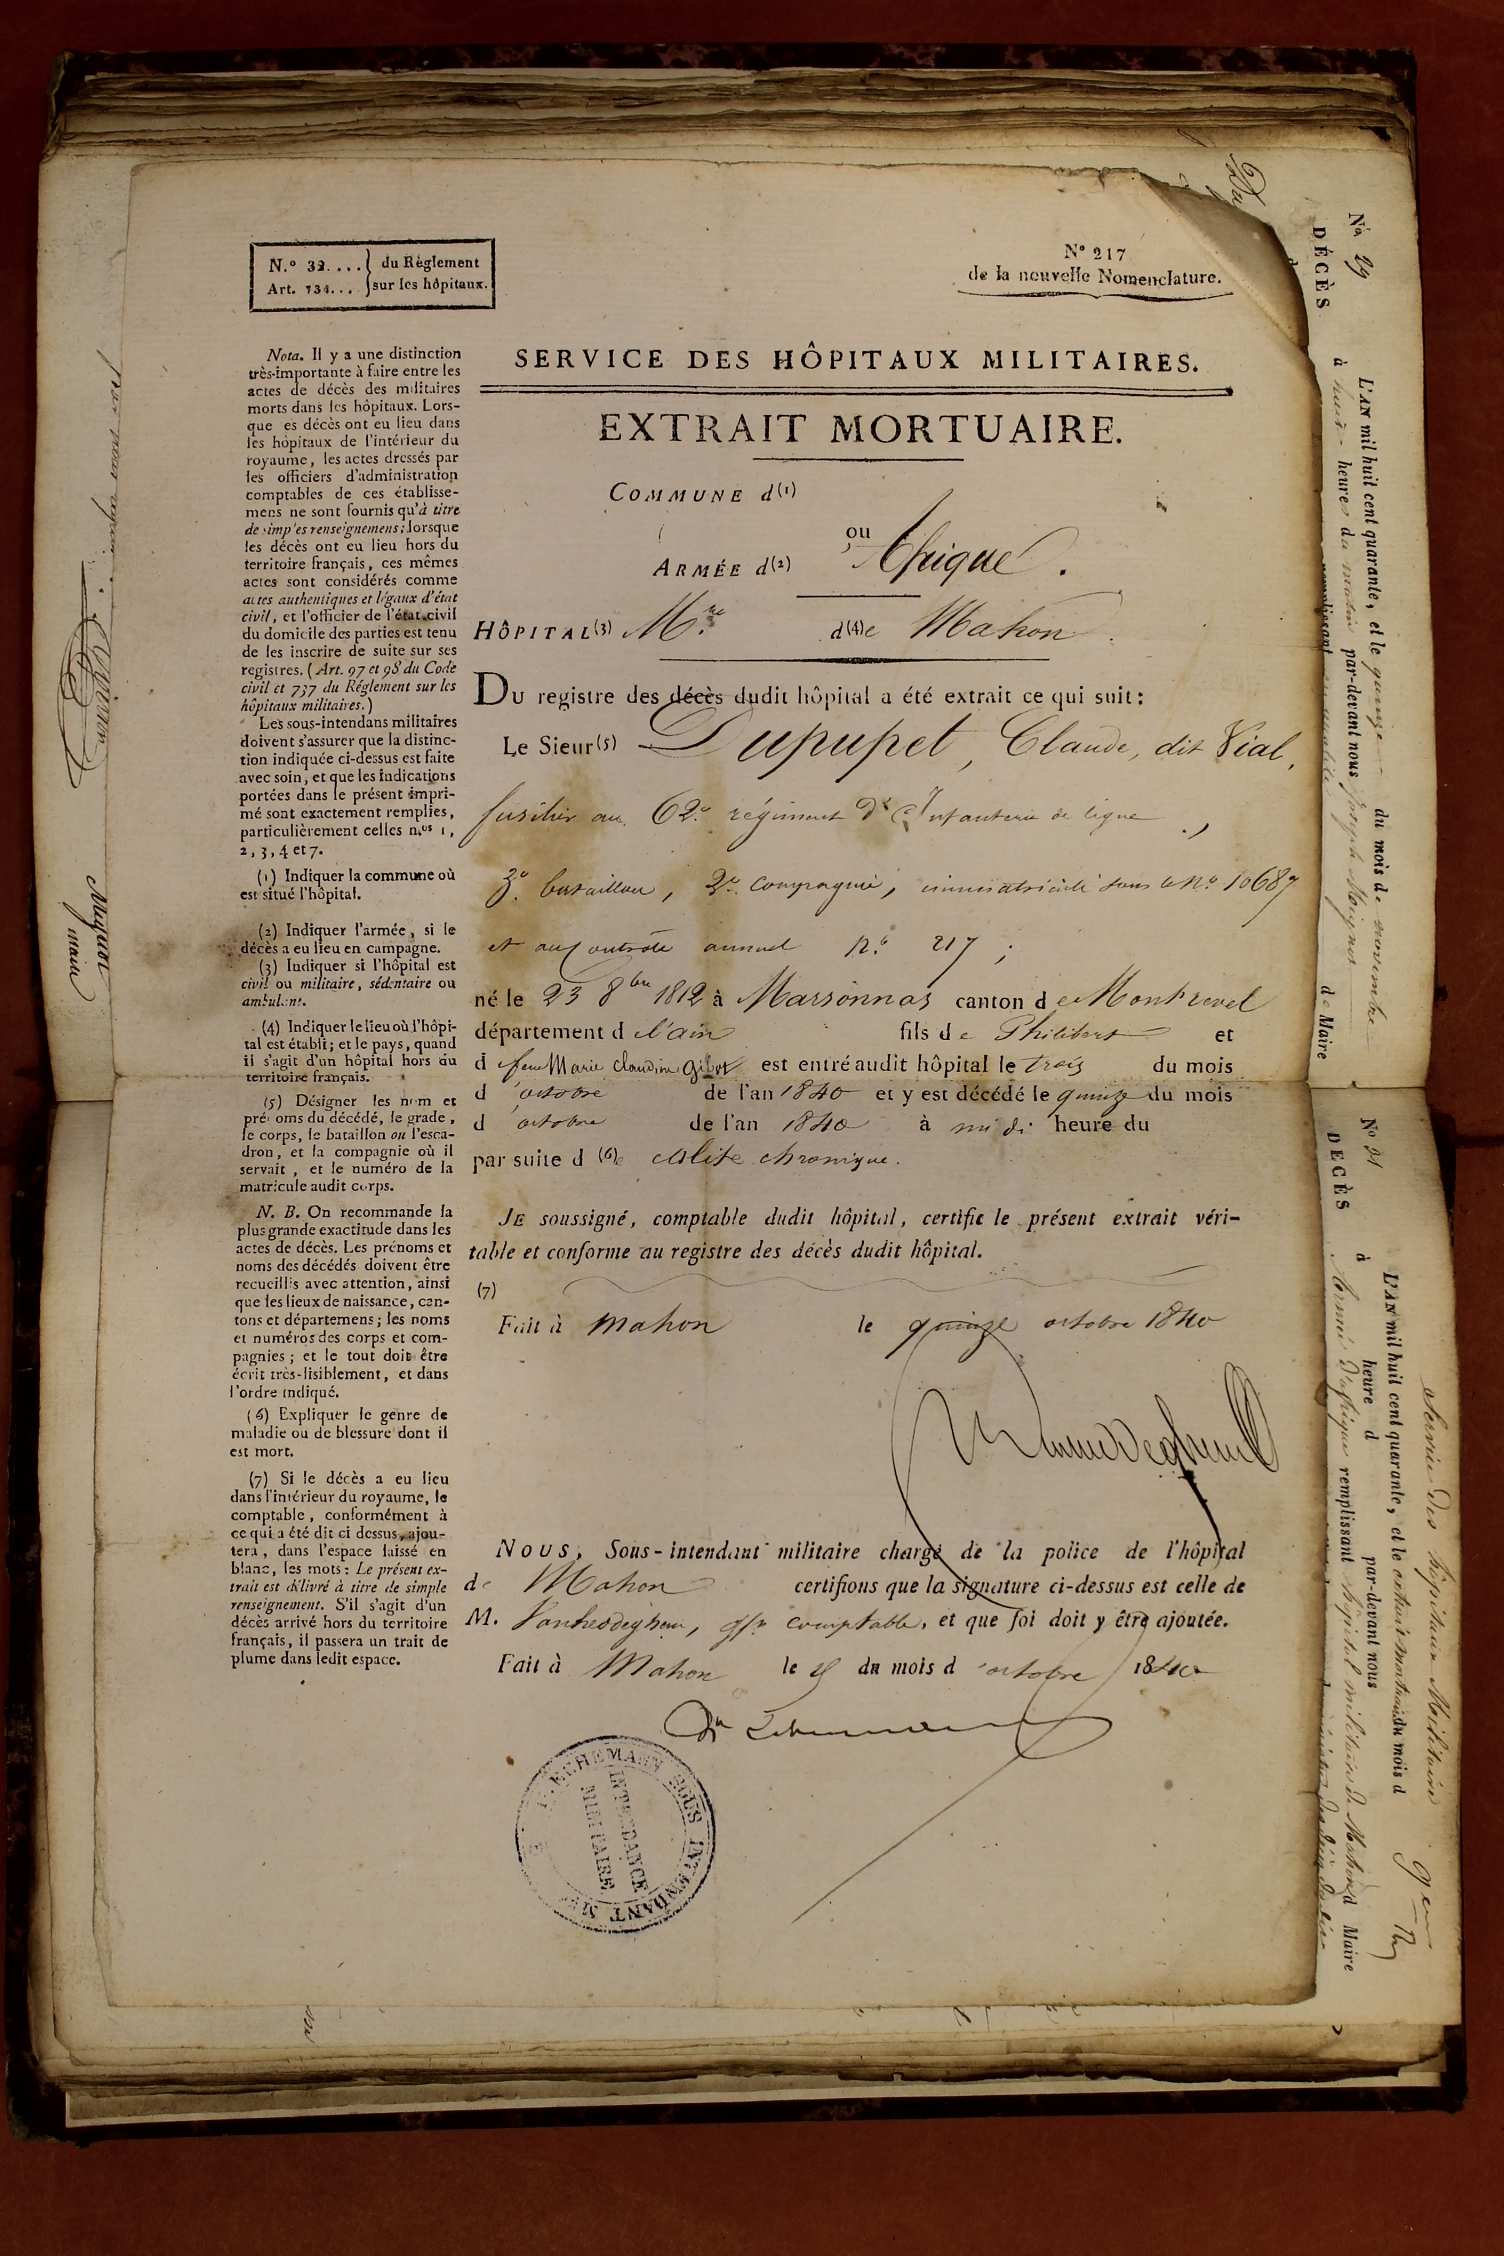 N.º 32.... du Règlement
Art. 734... sur les hôpitaux.
Nº 217
de la nouvelle Nomenclature.
SERVICE DES HÔPITAUX MILITAIRES.
EXTRAIT MORTUAIRE.
COMMUNE d(1)
ou
ARMÉE d(2) Afrique.
HÔPITAL(3) M.re d(4)e Mahon
DU registre des décès dudit hôpital a été extrait ce qui suit:
Le Sieur(5) Dupupet, Claude, dit Vial,
fusilier au 62e régiment d'Infanterie de ligne,
3e bataillon, 2e compagnie, immatriculé sous le nº 10687
et au Contrôle annuel nº 217;
né le 23 8bre 1812 à Marsonnas canton de Montrevel
département d l'ain fils de Philibert et
d feue Marie Claudine Gibet est entré audit hôpital le trois du mois
d'octobre de l'an 1840 et y est décédé le quinze du mois
d'octobre de l'an 1840 à midi heure du
par suite d(6)e colite chronique.
JE soussigné, comptable dudit hôpital, certifie le présent extrait véri-
table et conforme au registre des décès dudit hôpital.
(7)
Fait à Mahon le quinze octobre 1840
NOUS, Sous-intendant militaire chargé de la police de l'hôpital
de Mahon certifions que la signature ci-dessus est celle de
M. comptable, et que foi doit y être ajoutée.
Fait à Mahon le du mois d'octobre 1840
SOUS INTENDANT
INTENDANCE
MILITAIRE
Nota. Il y a une distinction
très-importante à faire entre les
actes de décès des militaires
morts dans les hôpitaux. Lors-
que es décès ont eu lieu dans
les hôpitaux de l'intérieur du
royaume, les actes dressés par
les officiers d'administration
comptables de ces établisse-
mens ne sont fournis qu'à titre
de simp'es renseignemens; lorsque
les décès ont eu lieu hors du
territoire français, ces mêmes
actes sont considérés comme
actes authentiques et légaux d'état
civil, et l'officier de l'état civil
du domicile des parties est tenu
de les inscrire de suite sur ses
registres. (Art. 97 et 98 du Code
civil et 737 du Réglement sur les
hôpitaux militaires.)
Les sous-intendans militaires
doivent s'assurer que la distinc-
tion indiquée ci-dessus est faite
avec soin, et que les indications
portées dans le présent impri-
mé sont exactement remplies,
particulièrement celles n.os 1,
2, 3, 4 et 7.
(1) Indiquer la commune où
est situé l'hôpital.
(2) Indiquer l'armée, si le
décès a eu lieu en campagne.
(3) Indiquer si l'hôpital est
civil ou militaire, sédentaire ou
ambulant.
(4) Indiquer le lieu où l'hôpi-
tal est établi; et le pays, quand
il s'agit d'un hôpital hors du
territoire français.
(5) Désigner les nom et
prénoms du décédé, le grade,
le corps, le bataillon ou l'esca-
dron, et la compagnie où il
servait, et le numéro de la
matricule audit corps.
N. B. On recommande la
plus grande exactitude dans les
actes de décès. Les prénoms et
noms des décédés doivent être
recueillis avec attention, ainsi
que les lieux de naissance, can-
tons et départemens; les noms
et numéros des corps et com-
pagnies; et le tout doit être
écrit très-lisiblement, et dans
l'ordre indiqué.
(6) Expliquer le genre de
maladie ou de blessure dont il
est mort.
(7) Si le décès a eu lieu
dans l'intérieur du royaume, le
comptable, conformément à
ce qui a été dit ci dessus, ajou-
tera, dans l'espace laissé en
blanc, les mots: Le présent ex-
trait est délivré à titre de simple
renseignement. S'il s'agit d'un
décès arrivé hors du territoire
français, il passera un trait de
plume dans ledit espace.
No 29
DÉCÈS
L'AN mil huit cent quarante, et le quinze du mois de novembre
à heures du matin par-devant nous Joseph Mignot de Maire
No 31
DECÈS
Service des hôpitaux Militaires
L'AN mil huit cent quarante, et le extrait mortuaire du mois d
à heure d par-devant nous
Armée d'afrique remplissant hôpital militaire de Mahon d Maire
maire